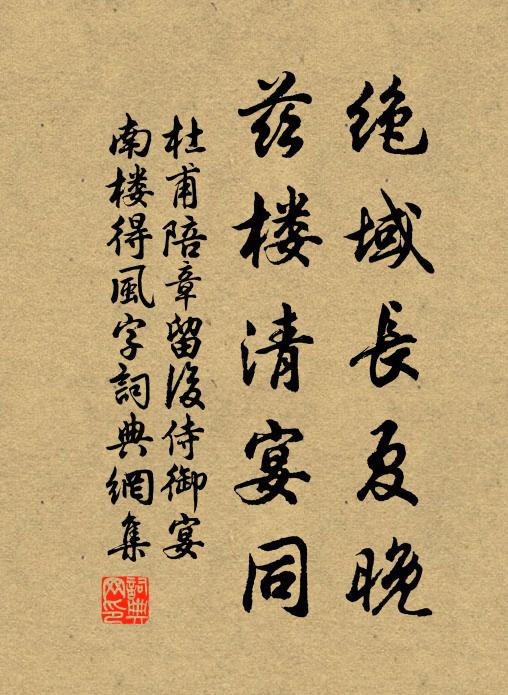 绝域長夏晚
兹楼清宴同
杜甫陪章留後侍御宴
南楼得風字詞典網集
詞典网印